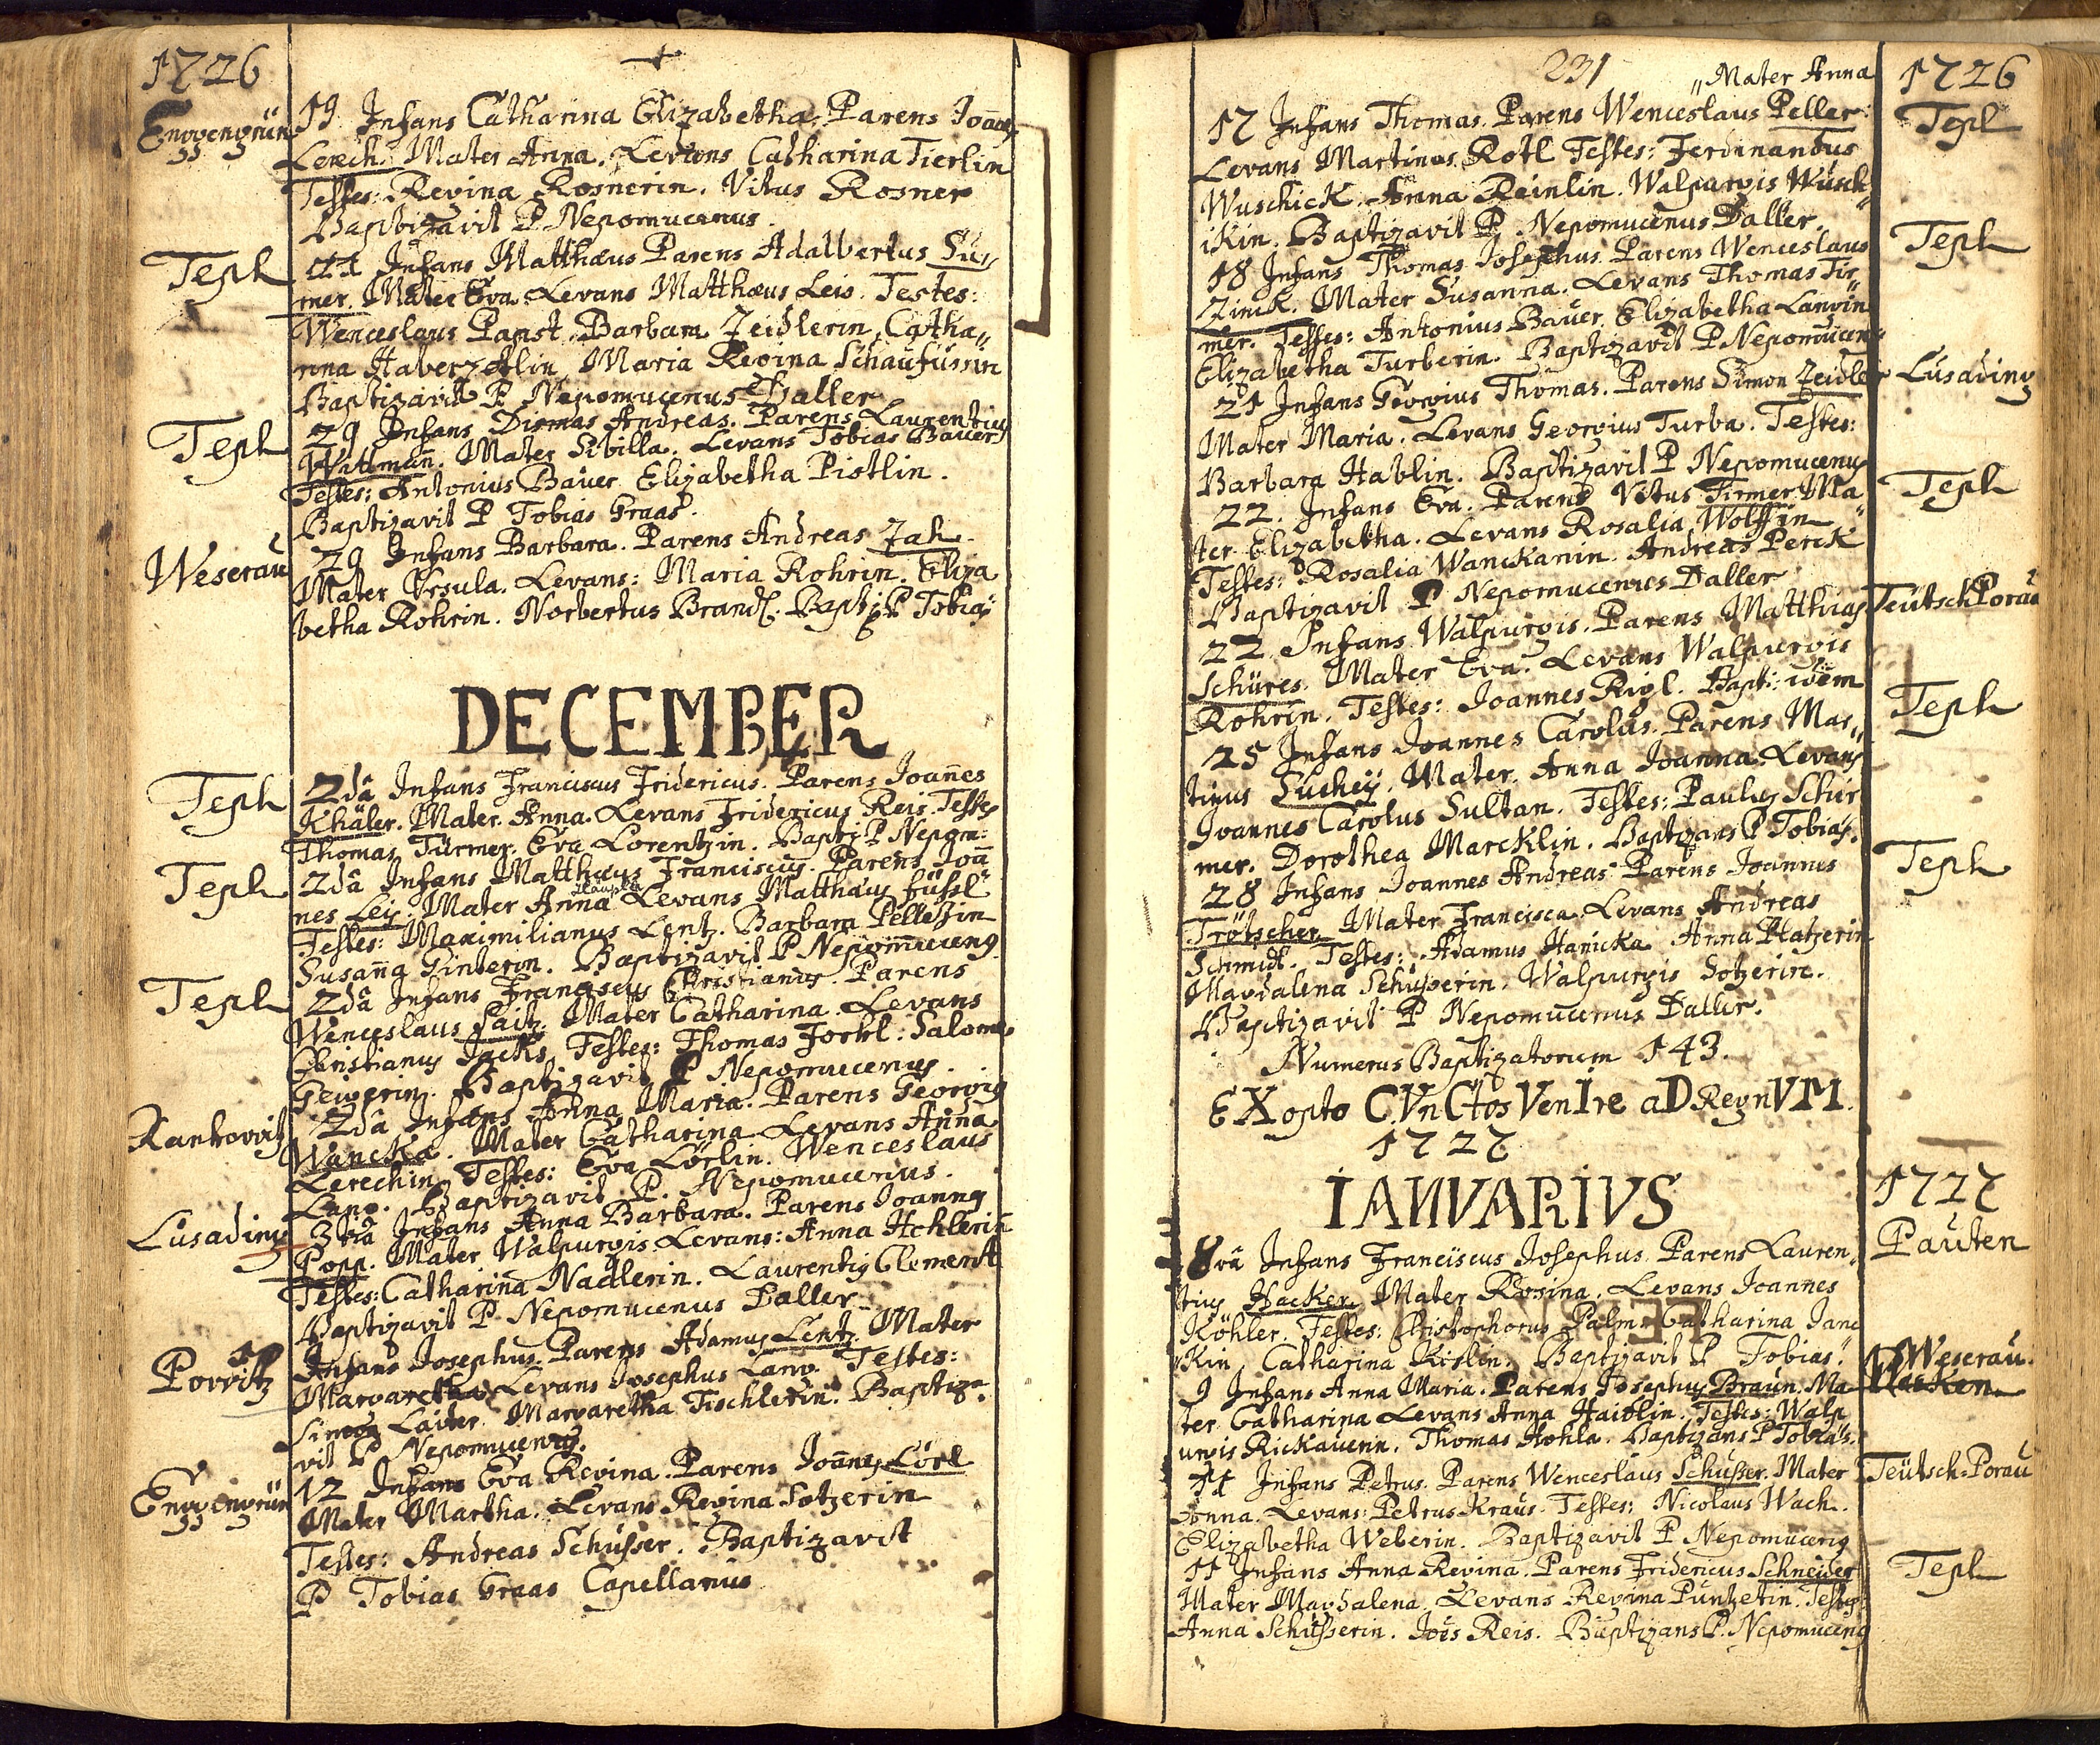 1726
Engengrün
19 Infans Catharina Elizabetha. Parens Joanes
Lerch. Mater Anna. Levans Catharina Tierlin
Testes: Regina Rosnerin. Vitus Rosner
Baptizavit P Nepomucenus.
Tepl
21 Infans Matthæus Parens Adalbertus Tür
mer. Mater Eva Levans Matthæus Leis. Testes:
Wenceslaus Panst. Barbara Zeidlerin, Catha„
rina Haberzetlin, Maria Regina Schaufussin
Baptizavit P Nepomucenus Daller
Tepl
29 Infans Dismas Andreas. Parens Laurentius
Wattman. Mater Sibilla. Levans Tobias Bauer
Testes: Antonius Bauer Elizabetha Pistlin.
Baptizavit P Tobias Graas.
Weserau
29 Infans Barbara. Parens Andreas Zah.
Mater Ursula. Levans: Maria Rohrin. Eliza
betha Rohrin. Norbertus Brandl. Bapti: P Tobias
DECEMBER
Tepl
2dâ Infans Franciscus Fridericus. Parens Joañes
Khäler. Mater Anna. Levans Fridericus Reis. Testes
Thomas Türmer. Eva Lorentzin. Bapti: P Nepom:
Tepl
2dâ Infans Matthæus Franciscus. Parens Joan
nes Leis. Mater Anna Levans Matthæus füssl
Testes: Maximilianus Lentz. Barbara Pelletzin
Susaña Ginterin. Baptizavit P Nepomucenus
Tepl
2dâ Infans Franciscus Christianus. Parens
Wenceslaus Saitz. Mater Catharina. Levans
Christianus Jacks. Testes: Thomas Jockl: Salome
Geigerin. Baptizavit P Nepomucenus.
Rankovitz
2dâ Infans Anna Maria. Parens Georgius
Wancka. Mater Catharina. Levans Anna
Lerechin. Testes: Eva Lörlin. Wenceslaus
Lang. Baptizavit P. Nepomucenus.
Lusading
3tiâ Infans Anna Barbara. Parens Joannes
Popp. Mater Walpurgis. Levans: Anna Hehlerin
Testes: Catharina Nadlerin. Laurentius Clement
Baptizavit P. Nepomucenus Daller
Porritz
Infans Josephus. Parens Adamus Lentz. Mater
Margaretha Levans Josephus Lang. Testes:
Simon Laiter. Margaretha Tischlerin. Baptiza
vit P Nepomucenus.
Engengrün
12 Infans Eva Regina. Parens Joañes Lörl
Mater Martha. Levans Regina Sotzerin
Testes: Andreas Schusser. Baptizavit
P Tobias Graas Capellanus
231
„Mater Anna
1726
17 Infans Thomas. Parens Wenceslaus Peller:
Tepl
Levans Martinus Rotl Testes: Ferdinandus
Wuschick. Anna Reinlin. Walpurgis Wusch„
ikin. Baptizavit P Nepomucenus Daller.
Tepl
18 Infans Thomas Josephus. Parens Wenceslaus
Zinck. Mater Susanna. Levans Thomas Tir„
mer. Testes: Antonius Bauer Elizabetha Langin
Elizabetha Turberin. Baptizavit P Nepomucen„
Lusading
21 Infans Georgius Thomas. Parens Simon Zeidler
Mater Maria. Levans Georgius Turba. Testes:
Barbara Hablin. Baptizavit P Nepomucenus
Tepl
22. Infans Eva. Parens Vitus Tirmer. Ma„
ter Elizabetha. Levans Rosalia Wolffin
Testes: Rosalia Wanckanin. Andreas Perck
Baptizavit P Nepomucenus Daller
Teutsch Porau
22. Infans Walpurgis. Parens Matthias
Schüres. Mater Eva. Levans Walpurgis
Rohrin. Testes: Joannes Rigl. Bapti: idem
Tepl
25 Infans Joannes Carolus. Parens Mar„
tinus Suchey. Mater Anna Joanna. Levans
Joannes Carolus Sultan. Testes: Paulus Schir
mer. Dorothea Marcklin. Baptizans P Tobias.
Tepl
28 Infans Joannes Andreas Parens Joannes
Trötscher. Mater Francisca. Levans Andreas
Schmidt. Testes: Adamus Hanicka Anna Platzerin
Magdalena Schusserin. Walpurgis Sotzerin.
Baptizavit P Nepomucenus Daller.
Numerus Baptizatorum 143.
EXopto CVnCtos VenIre aD RegnVM.
1727
IANVARIVS
1727
Pauten
8vâ Infans Franciscus Josephus. Parens Lauren„
tius Hacker. Mater Rosina. Levans Joannes
Köhler. Testes: Christophorus Palm. Catharina Janc
„kin Catharina Kislin. Baptizavit P Tobias.
Weserau.
9 Infans Anna Maria. Parens Josephus Braun. Ma
ter Catharina Levans Anna Haidlin. Testes: Walp
urgis Rickauerin. Thomas Hohla. Baptizans P Tobias.
Teütsch-Porau
11 Infans Petrus. Parens Wenceslaus Schusser. Mater
Anna. Levans: Petrus Kraus. Testes: Nicolaus Wach.
Elizabetha Weberin. Baptizavit P Nepomucenus
Tepl
11 Infans Anna Regina. Parens Fridericus Schneider
Mater Magdalena. Levans Regina Puntzetin. Testes:
Anna Schusserin. Joes Reis. Baptizans P. Nepomucenus